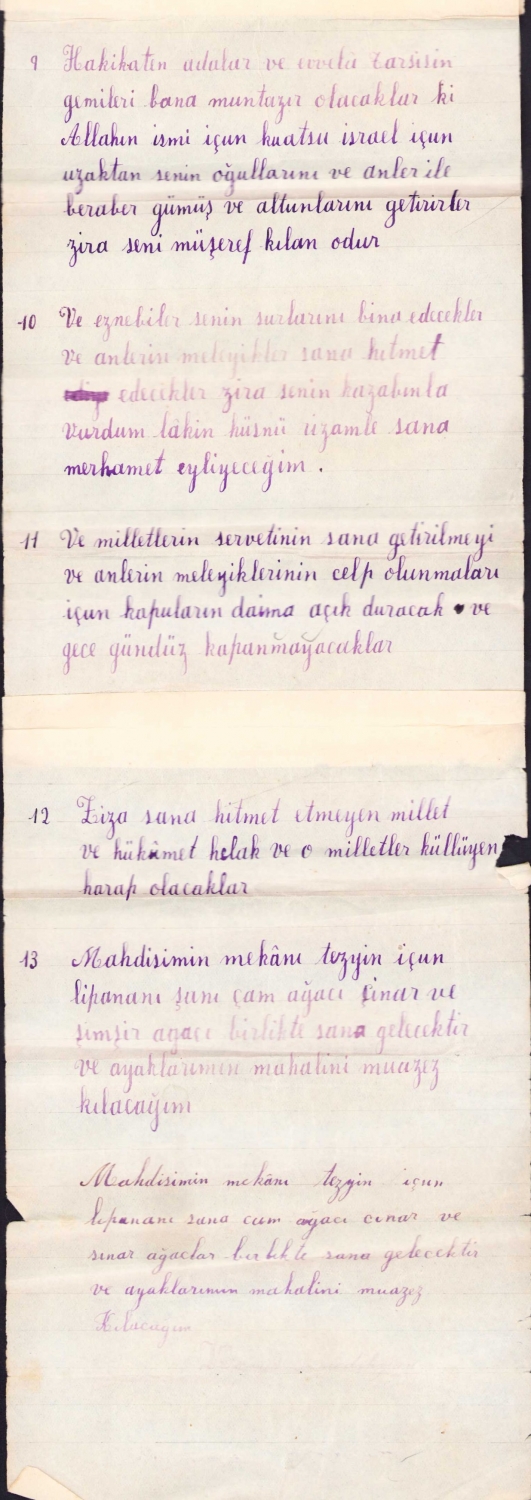 9 Hakikaten adalar ve evvelâ Tarsisin
gemileri bana muntazır olacaklar ki
Allahın ismi içun kuatsu israel içun
uzaktan senin oğullarını ve anler ile
beraber gümüş ve altunlarını getirirler
zira seni müşeref kılan odur
10 Ve eznebiler senin surlarını bina edecekler
ve anlerin meleyikler sana hitmet
edecekler zira senin kazabınla
vurdum lâkin hüsnü rizamle sana
merhamet eyliyeceğim .
11 Ve milletlerin servetinin sana getirilmeyi
ve anlerin meleyiklerinin celp olunmaları
içun kapuların daima açık duracak ve
gece gündüz kapanmayacaklar
12 Ziza sana hitmet etmeyen millet
ve hükümet helak ve o milletler küllüyen
harap olacaklar
13 Mahdisimin mekânı tezyin içun
lipananı şanı çam ağacı çinar ve
şimşir agaçı birlikte sana gelecektir
ve ayaklarımın mahalini muazez
kılacağım
Mahdisimin mekânı tezyin içun
lipananı sana cam ağacı cınar ve
sınar ağaclar birlikte sana gelecektir
ve ayaklarımın mahalini muazez
Kılacagım